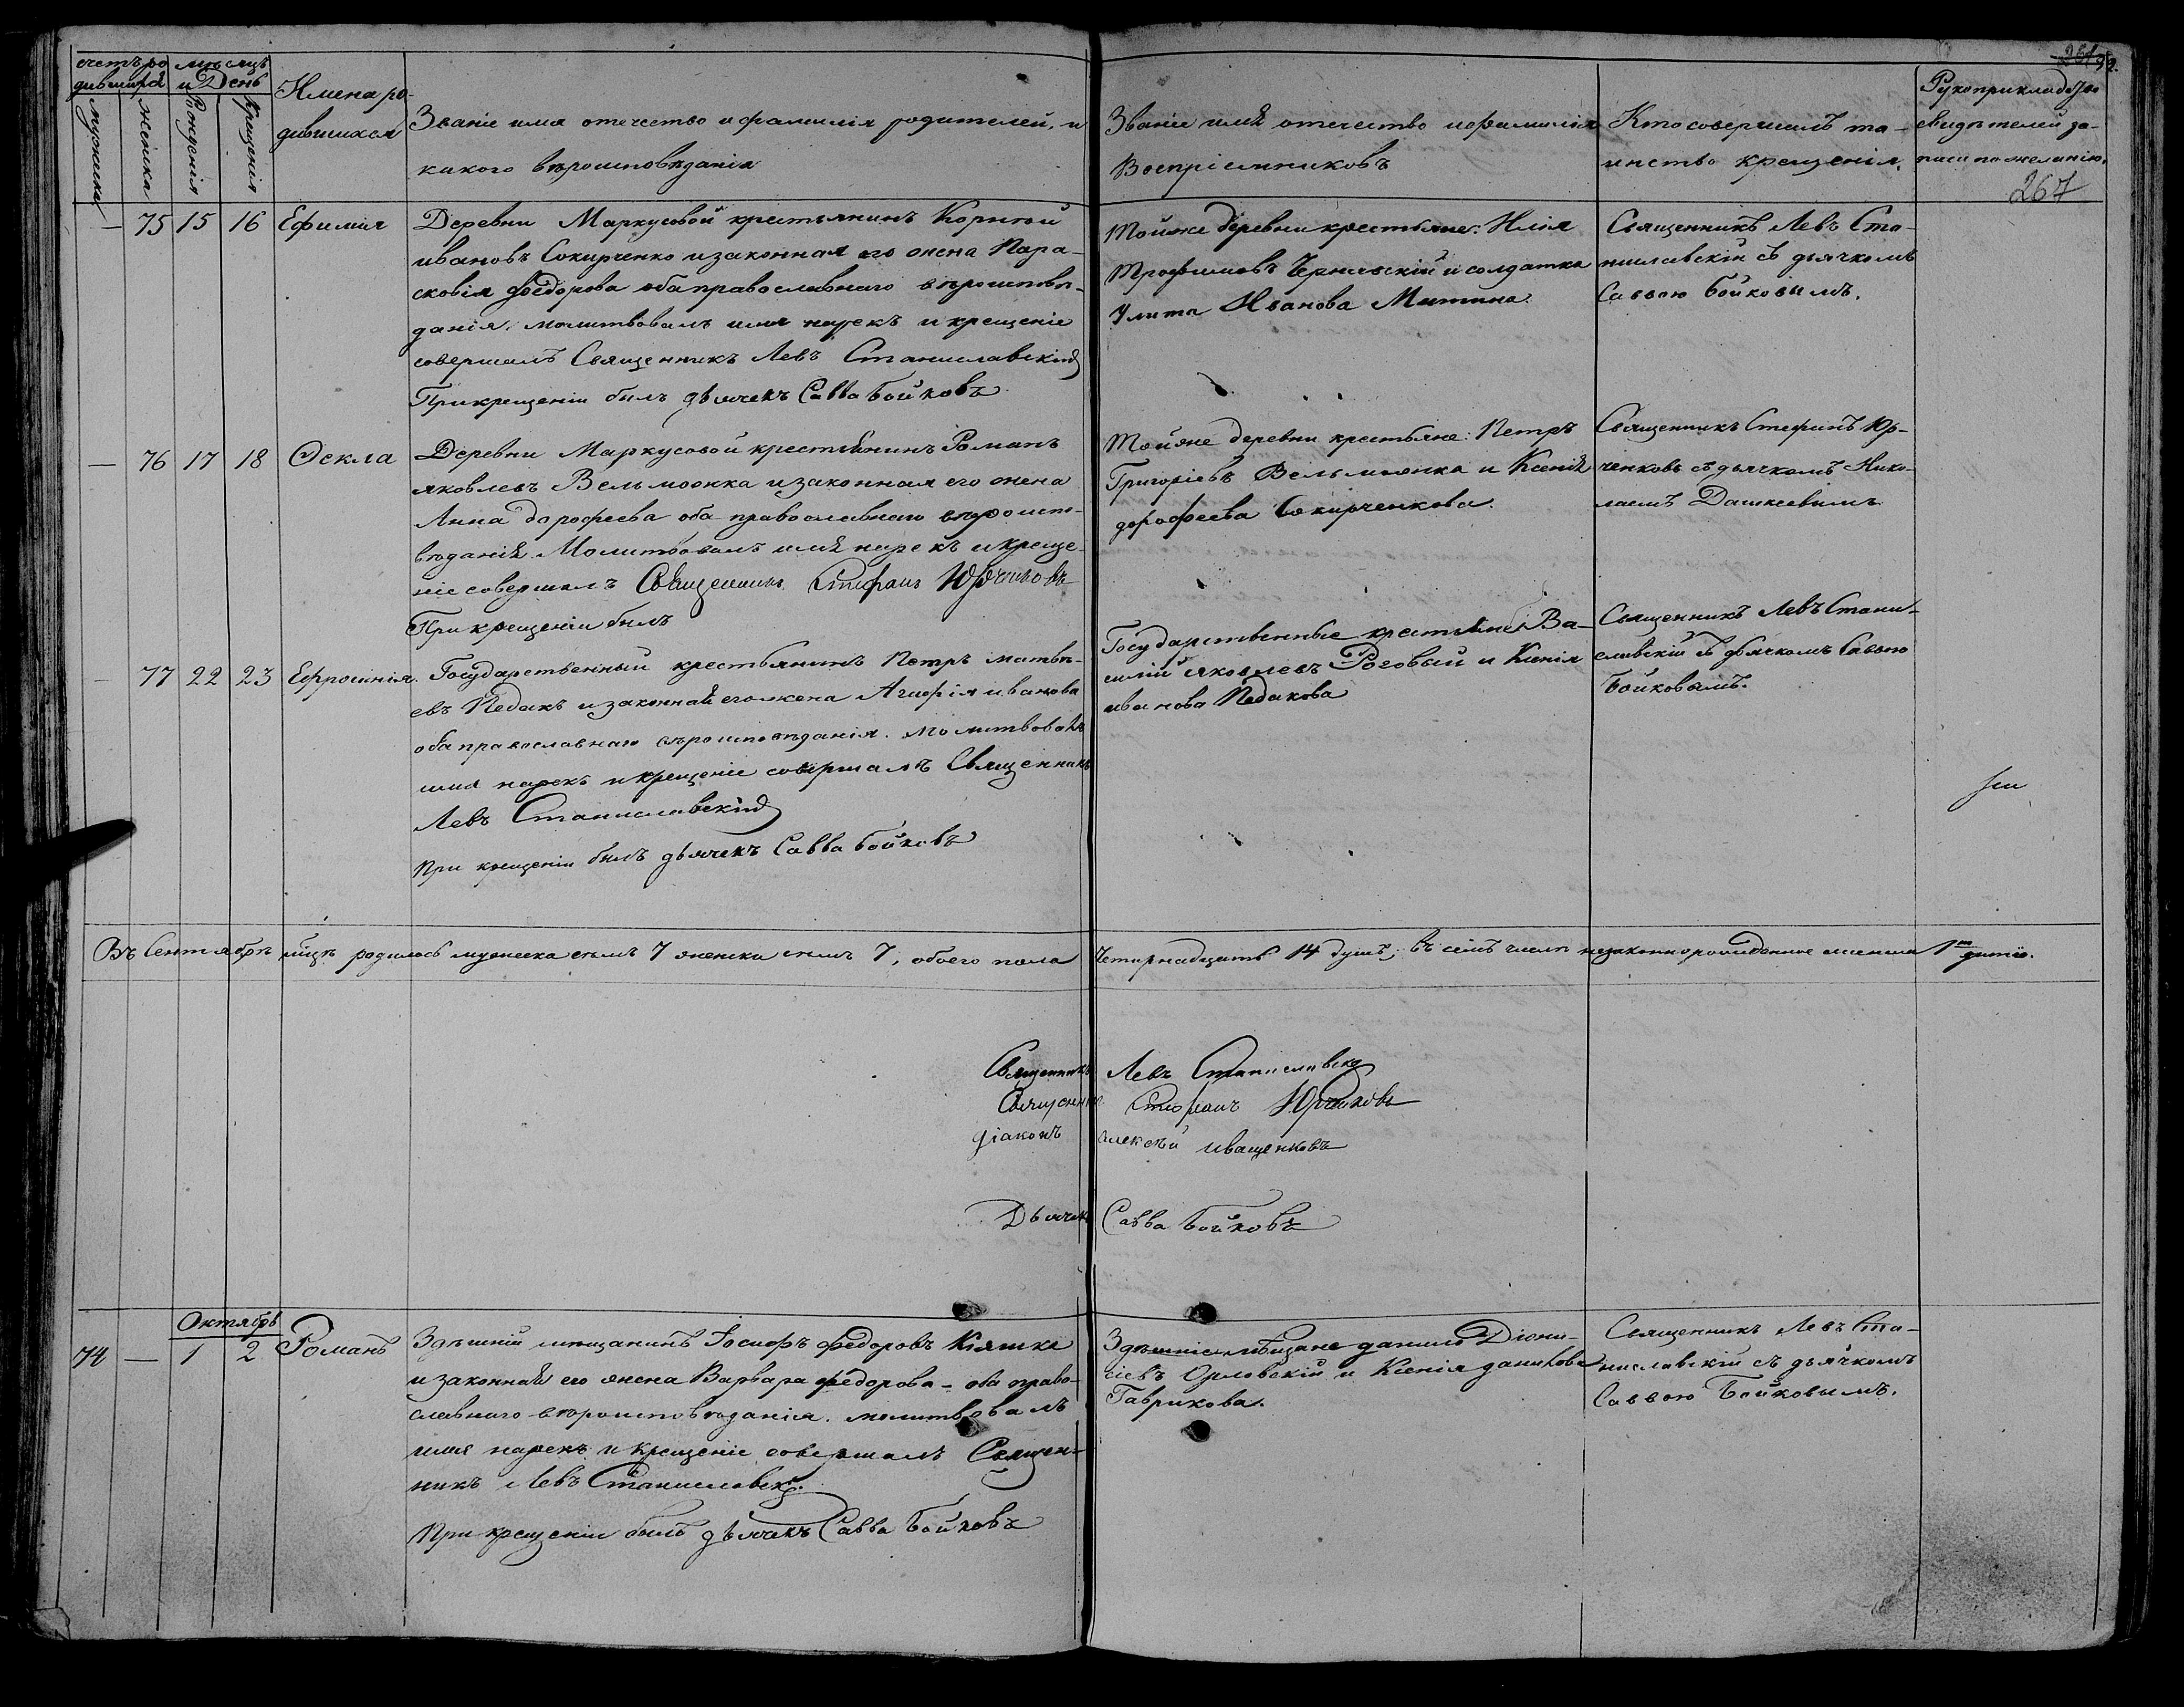 счетъ ро
дившихся
мѣсяцъ
и День
мужеска
женска
Рожденія
Крещенія
Имена ро-
дившихся
Званіе имя отечество и фамилія родителей, и
какого вѣроисповѣданія
Званіе имя отечество и фамилія
Воспріемниковъ
Кто совершилъ та-
инство крещенія.
Рукоприкладство
свидѣтелей за-
писи по желанію.
267
— 75 15 16 Ефимия
Деревни Маркусовой крестьянинъ Корнѣй
ивановъ Сокирченко и законная его жена Пара-
сковія федорова оба православнаго вѣроисповѣ-
данія, молитвовалъ имя нарекъ и крещеніе
совершалъ Священникъ Левъ Станиславскій
При крещеніи былъ дьячекъ Савва Бойковъ
Той же деревни крестьяне: Илія
Трофимовъ Чернявскій и солдатка
Улита Иванова Митина.
Священникъ Левъ Ста-
ниславскій съ дьячкомъ
Саввою Бойковымъ.
— 76 17 18 Фекла
Деревни Маркусовой крестьянинъ Романъ
яковлевъ Вельможка и законная его жена
Анна дорофеева оба православнаго вѣроиспо-
вѣданія. Молитвовалъ имя нарекъ и креще-
ніе совершалъ Священникъ Стефанъ Юрченковъ
При крещеніи былъ
Той же деревни крестьяне: Петръ
Григоріевъ Вельможка и Ксенія
дорофеева Сокирченкова.
Священникъ Стефанъ Юр-
ченковъ съ дьячкомъ Нико-
лаемъ Дашкеевымъ
— 77 22 23 Ефросинія.
Государственный крестьянинъ Петръ матвѣ-
евъ Педакъ и законная его жена Агафія иванова
оба православнаго вѣроисповѣданія. Молитвовалъ
имя нарекъ и крещеніе совершалъ Священникъ
Левъ Станиславскій
При крещеніи былъ дьячекъ Савва Бойковъ
Государственные крестьяне Ва-
силій яковлевъ Роговый и Ксенія
иванова Педакова
Священникъ Левъ Стани-
славскій съ дьячкомъ Саввою
Бойковымъ.
Въ Сентябрѣ мцѣ родилось мужеска семъ 7 женска семъ 7, обоего пола Четырнадцать 14 душъ; въ семъ числѣ незаконнорожденное женска 1 дитю.
Священникъ Левъ Станиславскій
Священникъ Стефанъ Юрченковъ
діаконъ алексѣй иващенковъ
Дьячекъ Савва Бойковъ
Октябрь
74 — 1 2 Романъ
Здѣшній мѣщанинъ Іосифъ федоровъ Кияшка
и законная его жена Варвара федорова - оба право-
славнаго вѣроисповѣданія. молитвовалъ
имя нарекъ и крещеніе совершалъ Священ-
никъ Левъ Станиславскій.
При крещеніи былъ дьячекъ Савва Бойковъ
Здѣшніе мѣщане данило Діони-
сіевъ Орловскій и Ксенія данилова
Гаврикова.
Священникъ Левъ Ста-
ниславскій съ дьячкомъ
Саввою Бойковымъ.